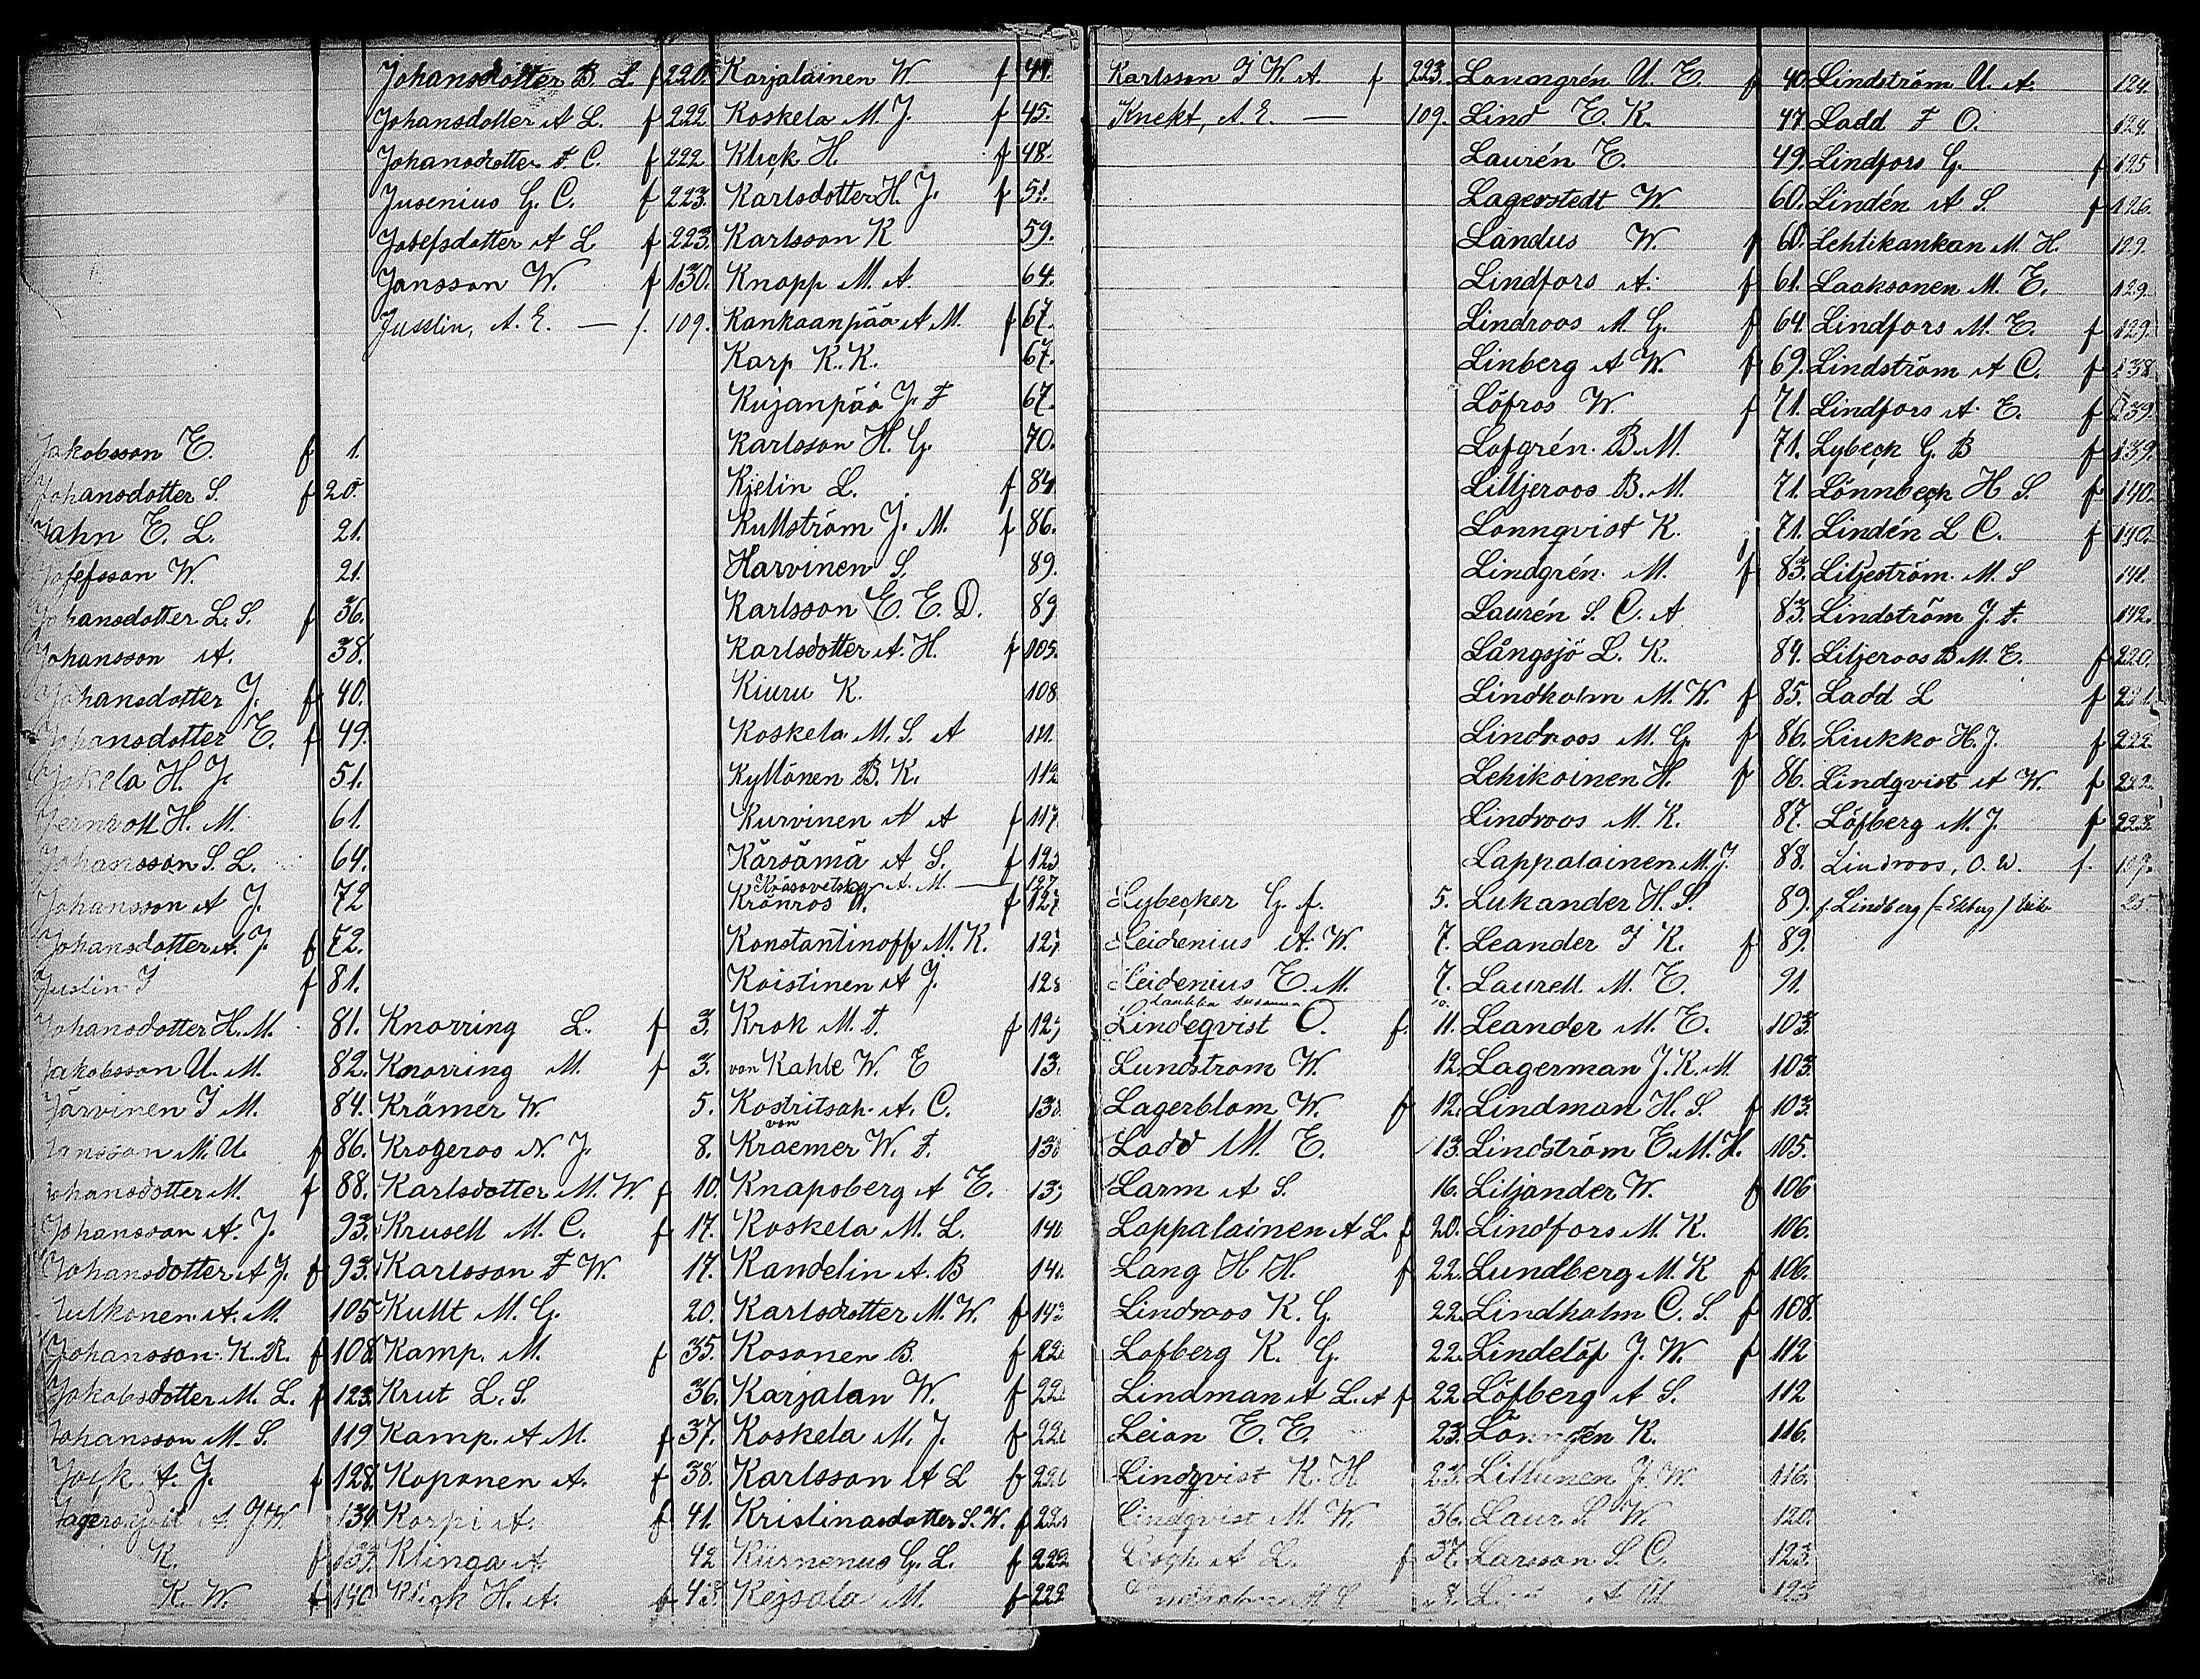 Jakobsson E. f 1.
Johansdotter S. f 20.
Jahn E. L. 21.
Josefsson W. 21.
Johansdotter L. S. f 36.
Johansson A. 38.
Johansdotter J. f 40.
Johansdotter E. f 49.
Jokela H. J. 51.
H. M. 61.
Johansson S. L. 64.
Johansson A J. 72
Johansdotter A. J. f 72.
Juslin I f 81.
Johansdotter H. M. 81.
Jakobsson U. M. 82.
Järvinen I M. 84.
Jansson M. U. f 86.
Johansdotter M. f 88.
Johansson A. J. 93.
Johansdotter A J. f 93.
Julkonen A. M. 105
Johansson K. R. f 108
Jakobsdotter M. L. f 123.
Johansson M. S. 119
A. J. f 128.
A J W. 134
K. f 133.
K. W. f 140
Johansdotter B. L f 220.
Johansdotter A L. f 222
Johansdotter F. C. f 222
Jusenius G. C. f 223.
Josefsdotter A L f 223.
Jansson W. f 130.
Jusslin, A. E. — f. 109.
Knorring L. f 3.
Knorring M. f 3.
Krämer W. 5.
Krogeros N. J. 8.
Karlsdotter M. W. f 10.
Krusell M. C. f 17.
Karlsson F W. 17.
Kullt M. G. 20.
Kamp. M. f 35.
Krut L. S. 36.
Kamp. A M. f 37.
Koponen A. f 38.
Korpi A. f 41.
Klinga A 42
Klick H. A. f 43
Karjalainen W f 44.
Koskela M. J. f 45.
Klick H. f 48.
Karlsdotter H. J. f 51.
Karlsson K 59.
Knopp M. A. 64.
Kankaanpää A M. f 67.
Karp K. K. 67.
Kujanpää J. F 67.
Karlsson H. G. 70.
Kjelin L. f 84
Kullström J. M. f 86.
Harvinen S. 89.
Karlsson E. E. D. 89
Karlsdotter A. H. f 105.
Kiuru K. 108
Koskela M. S. A 111.
Kyllönen B. K. 112
Kurvinen A A f 117
Kärsämä A S. f 123
A. M. — 127
Krönros W. f 127
Konstantinoff M. K. 127
Koistinen A J. 128
Krok M. F. f 12
von Kahle W. E 13
Kostritsah. A. C. 13
von
Kraemer W. F. 13
Knapsberg A E. 13
Koskela M. L. 140
Kandelin A. B 141.
Karlsdotter M. W. f 142
Kosonen B. f 22
Karjalan W. f 22
Koskela M. J. f 22
Karlsson A L f 22
Kristinasdotter S. W. f 22
G. L. f 222
Kejsala M. f 222
Karlsson I W. A. f 223.
Knekt, A. E. — 109.
Lybecker G. f. 5.
Leidenius A. W. 7.
Leidenius E. M. 7.
Laukka Susanna 10.
Lindeqvist O. f. 11.
Lundstrom W. 12.
Lagerblom W. f 12.
Ladd M. E. 13.
Larm A S. 16.
Lappalainen A L. f 20.
Lang H H. f 22.
Lindroos K. G. 22.
Lofberg K. G. 22.
Lindman A L. A f 22
Leion E. E. 23.
Lindqvist K. H 23.
Lindqvist M. W. 36.
A L. f 37.
M S
Lönngrén U. E. f 40.
Lind E. K. 47
Laurén E. 49.
Lagerstedt W. 60.
Landus W. f 60.
Lindfors A. f 61.
Lindroos M. G. f 64.
Linberg A W. f 69.
Löfros W. f 71.
Lofgrén. B. M. 71.
Lilljeroos B. M. 71.
Lonnqvist K. 71.
Lindgrén. M. f 83.
Laurén S. C. A 83.
Långsjö L. K. 84.
Lindholm M. W. f 85.
Lindroos M. G. f 86.
Lehikoinen H. f 86.
Lindroos M. K. 87.
Lappalainen M. J. 88.
Lukander H. S. 89.
Leander I K. f 89.
Laurell. M. E. 91.
Leander M. E. 103.
Lagerman J. K. M. 103.
Lindman H. S. f 103.
Lindström E. M. H. 105.
Liljander W. f 106
Lindfors M. K. 106.
Lundberg M. K f 106.
Lindholm C. S. f 108.
Lindelöf J. W. f 112
Löfberg A S. 112
K. 116.
Littunen J. W. 116.
Laur S. W. 120.
Larsson S. C. 123.
A U. 123
Lindström U. A. 124.
Ladd F O. 124.
Lindfors G. f 125
Lindén A S. f 126.
Lehtikankan M. H. 129.
Laaksonen M. E. 129.
Lindfors M. E. f 129.
Lindström A C. f 138
Lindfors A. E. f 139.
Lybeck G. B f 139.
Lönnbeck H S. f 140.
Lindén L C. f 140.
Liljeström. M. S 141.
Lindström J. F. 142.
Liljeroos B M. E. f 220.
Ladd L f 221.
Liukko H. J. f 222.
Lindqvist A W. f 222
Löfberg M. J. f 223.
Lindroos, O. W. f. 107.
f. Lindberg (= Ekberg) 25